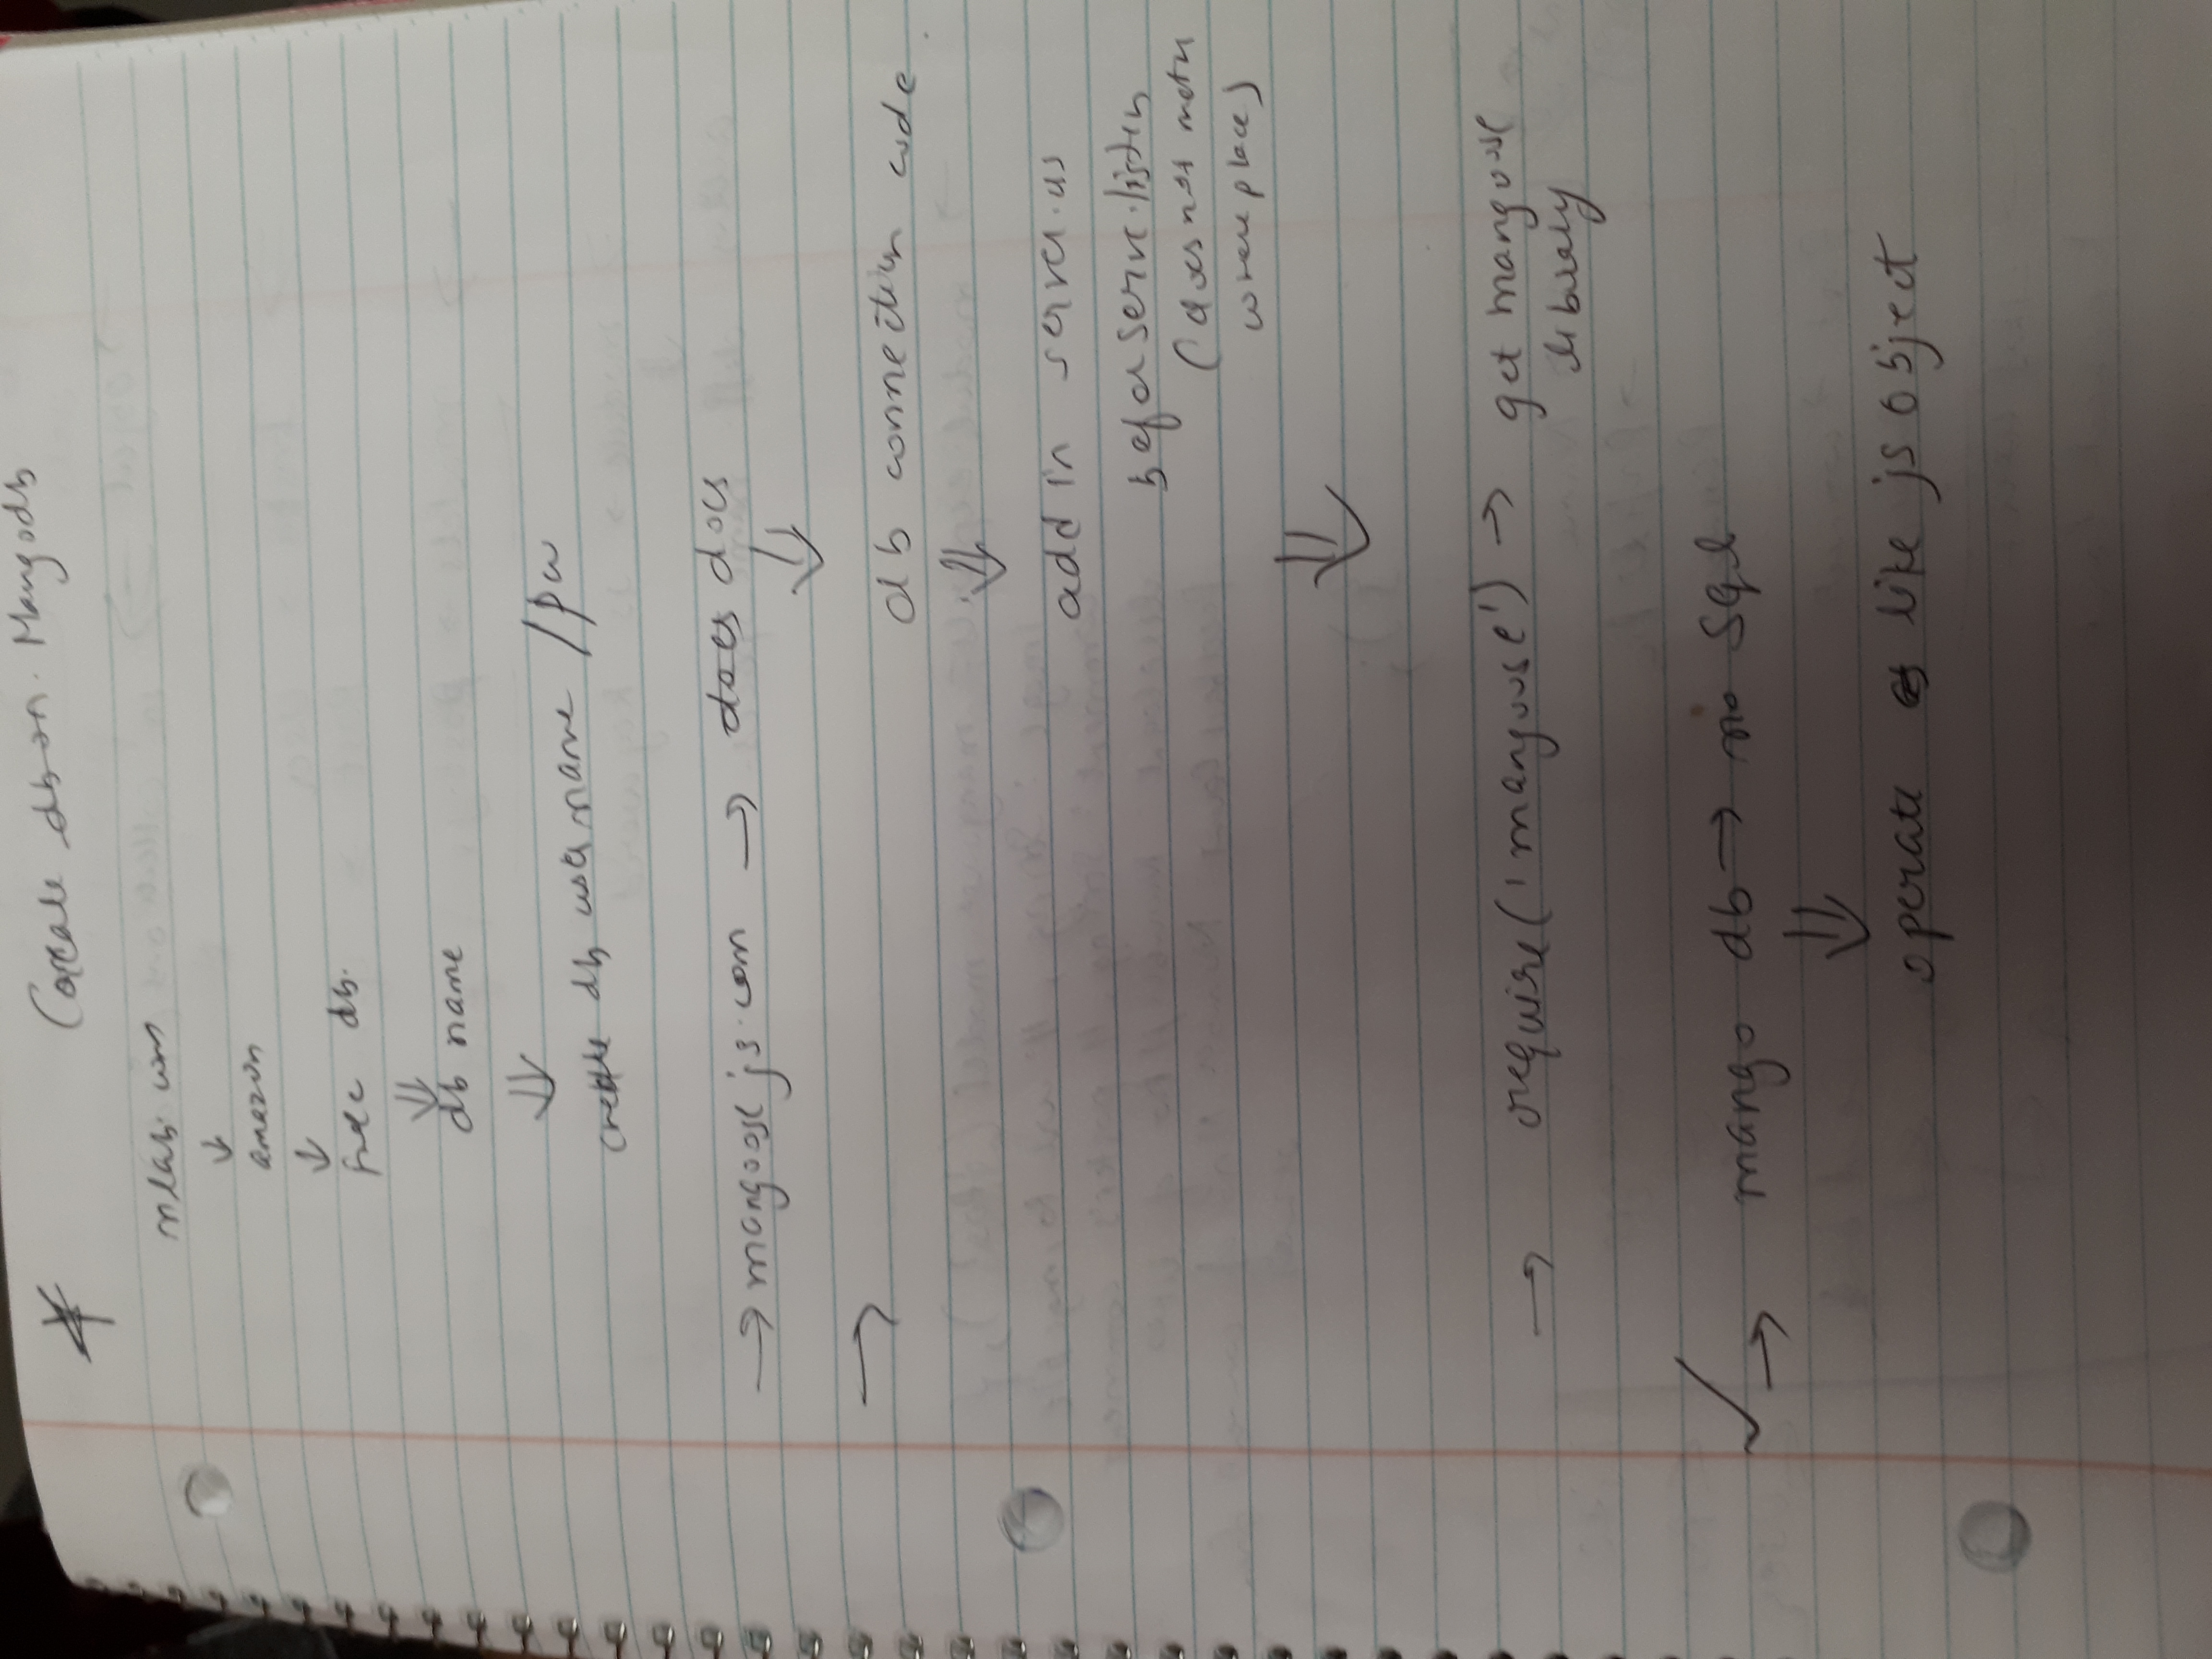 * Create db on. Mangodb
mlab.com
↓
amazon
↓
free db.
⇓
db name
⇓
create db user name / pw
→ mangoose js.com → docs docs
⇓
→
db connection code
⇓
add in server.js
before serve.listen
(does not matter
where place)
⇓
→ require('mangoose') → get mangoose
library
✓ → mango db → no sql
⇓
operate like js object